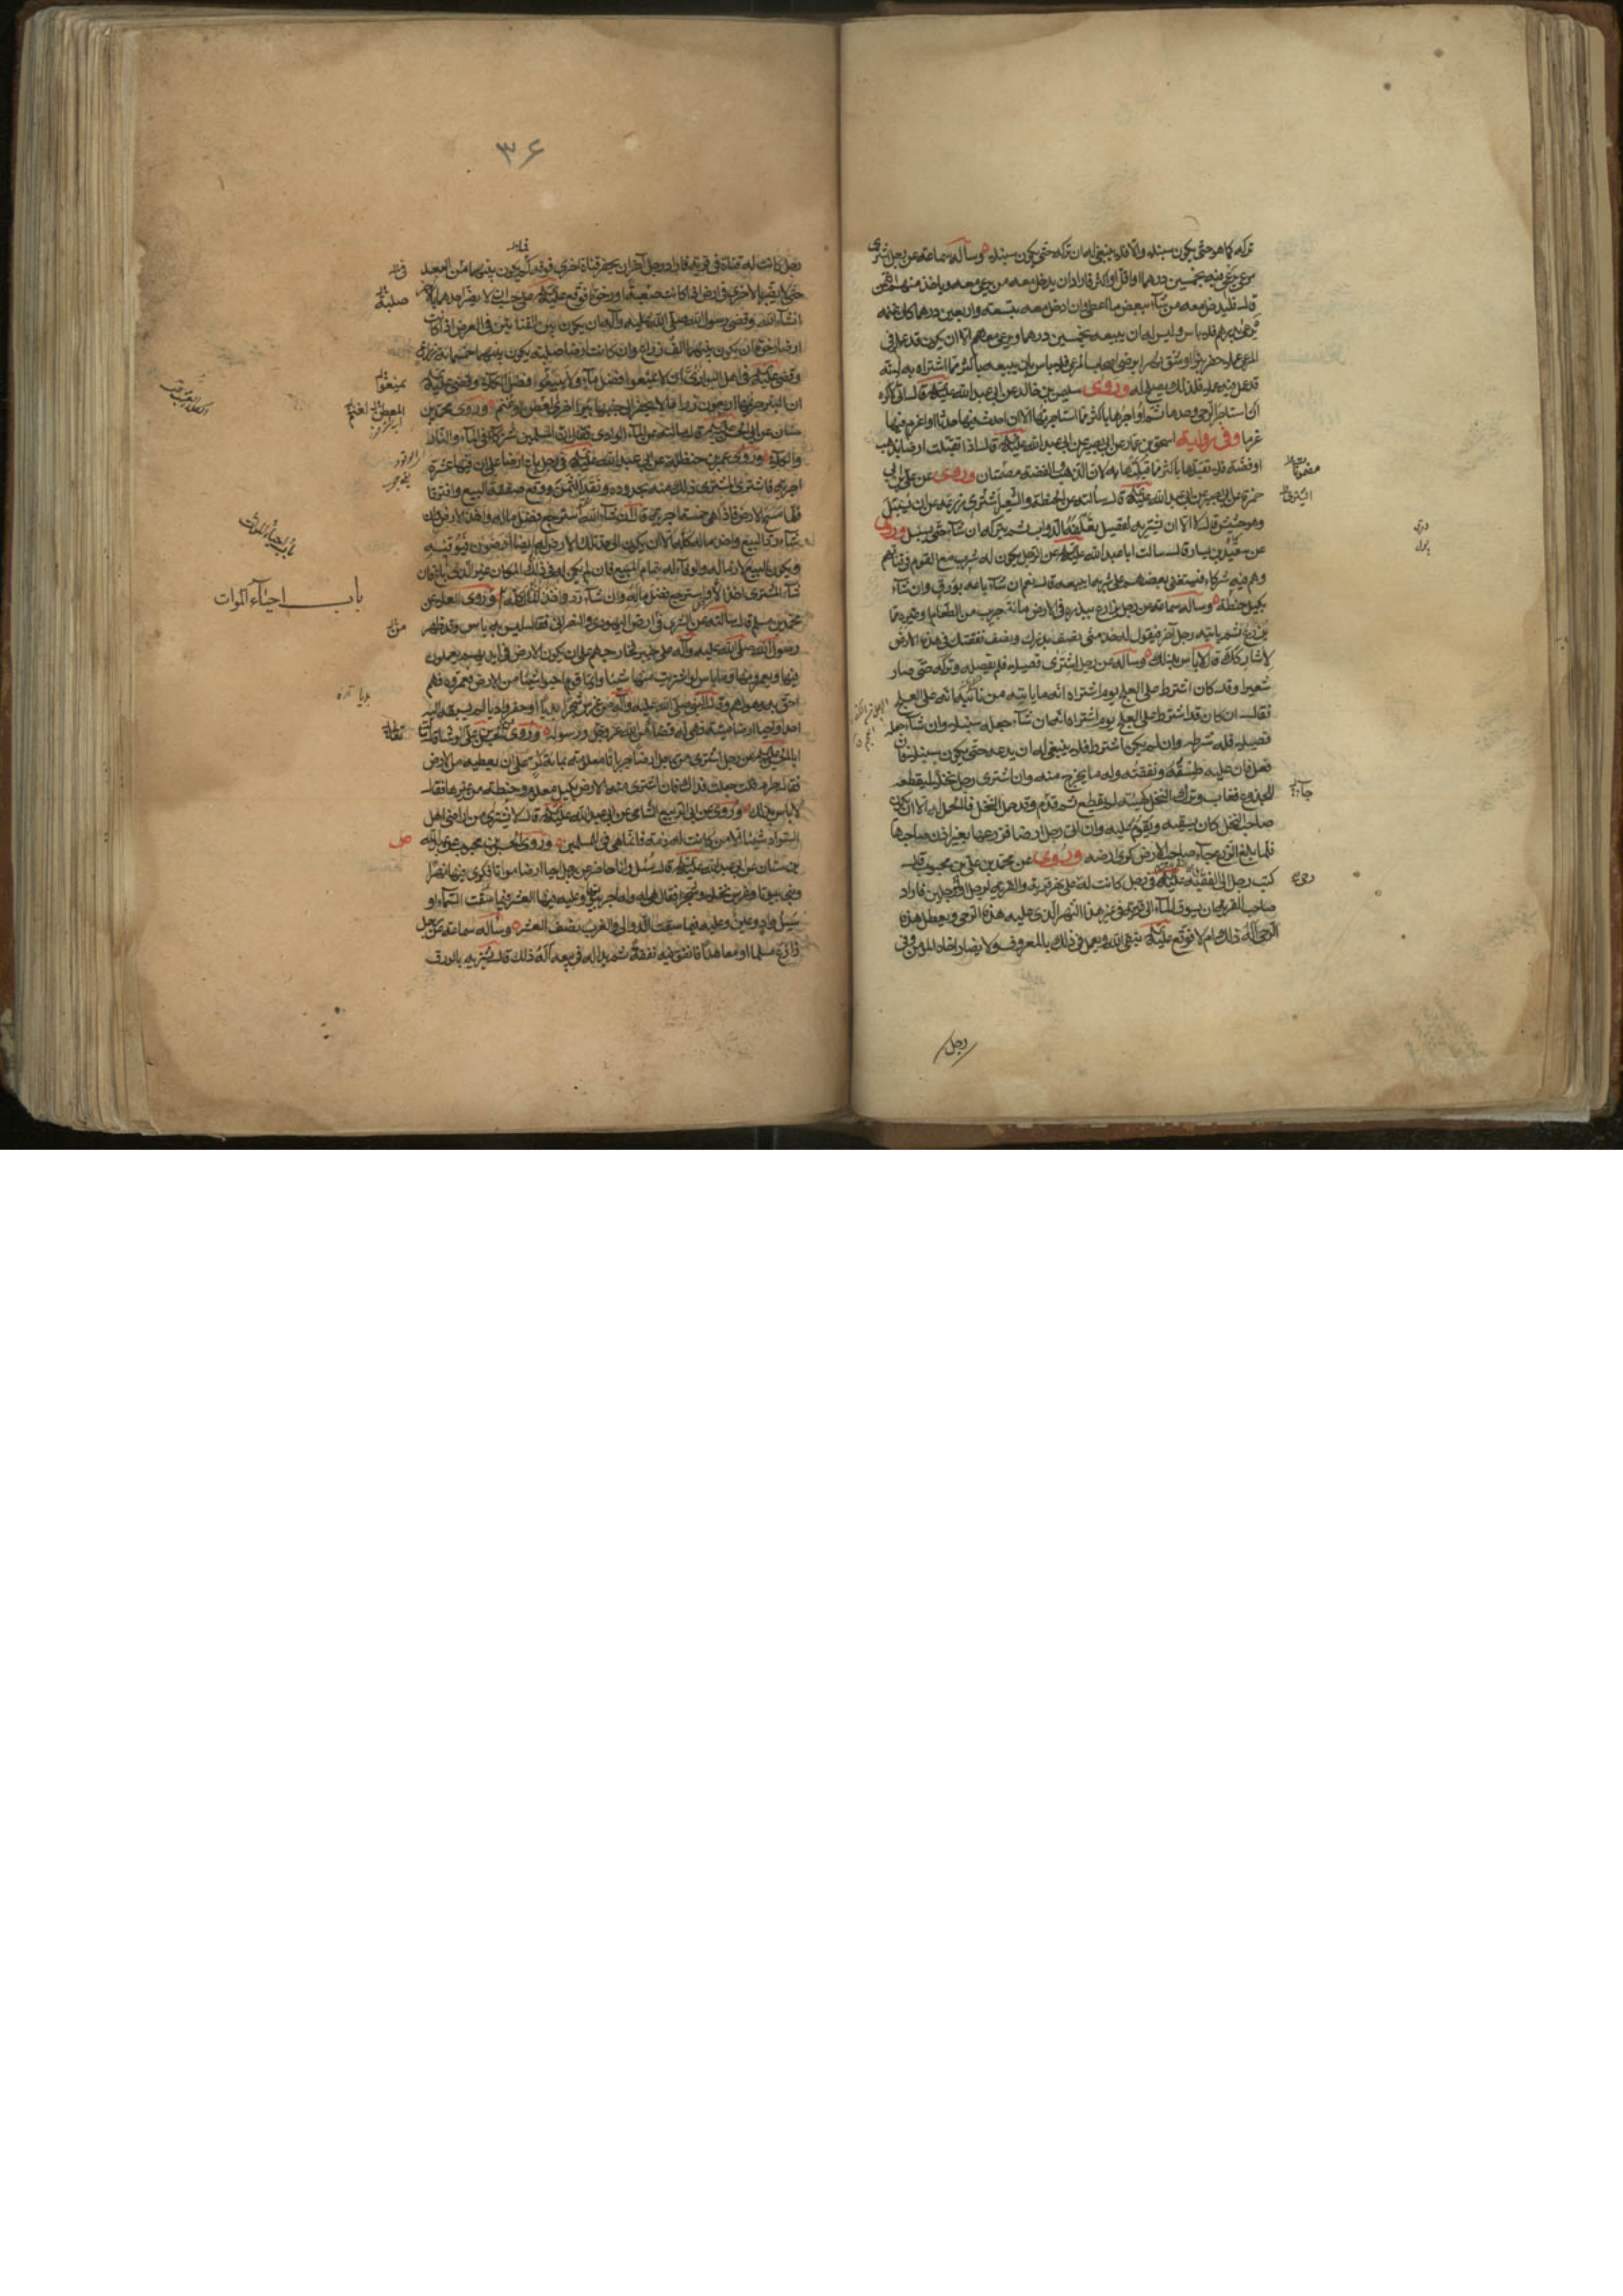 تركه كما هو حتى يكون سنبلا والا فلا ينبغي له ان تركه حتى يكون سنبلا وسأله سماعة عن رجل اشترى
مرعى يرعى فيه بخمسين درهما او اقل او اكثر فاراد ان يدخل معه من يرعى معه وياخذ منهم الثمن
قال فليدخل معه من شاء ببعض ما اعطى وان ادخل معه بتسعة واربعين درهما وكان غنمه
ترعى بدرهم فلا باس وليس له ان يبيعه بخمسين درهما ويرعى معهم الا ان يكون قد عمل في
المرعى عملا حفر بئرا او شق نهرا برضى اصحاب المرعى فلا باس بان يبيعه باكثر مما اشتراه به لانه
قد عمل فيه عملا فلذلك يصلح له وروى سليمن بن خالد عن ابي عبد الله عليه السلام قال اني لاكره
ان استاجر الرحى وحدها ثم اواجرها باكثر مما استاجرتها الا ان احدث فيها حدثا او اغرم فيها
غرما وفي رواية اسحق بن عمار عن ابي بصير عن ابي عبد الله عليه السلام قال اذا تقبلت ارضا بذهب
او فضة فلا تقبلها باكثر مما قبلتها به لان الذهب والفضة مصمتان وروى عن علي بن ابي
حمزة عن ابي بصير عن ابي عبد الله عليه السلام قال سألته عن الحنطة والشعير اشترى زرعه قبل ان يسنبل
وهو حشيش قال لا الا ان يشتريه لقصيل يعلفه الدواب ثم يتركه ان شاء حتى يسنبل وروى
عن سعيد بن يسار قال سالت ابا عبد الله عليه السلام عن الرجل يكون له شرب مع القوم في قناتهم
وهم فيه شركاء فيستغني بعضهم عن شربه ايبيعه قال نعم ان شاء باعه بورق وان شاء
بكيل حنطة وسأله سماعة عن رجل يزارع ببذره في الارض مائة جريب من الطعام او غيره مما
يزرع ثم ياتيه رجل آخر فيقول له خذ مني نصف بذرك ونصف نفقتك في هذه الارض
لاشاركك قال لا باس بذلك وسأله عن رجل اشترى قصيلا فلم يقصله وتركه حتى صار
شعيرا وقد كان اشترط على العلج يوم اشتراه انه ما ياتيه من نائبة فانه على العلج
فقال ان كان قد اشترط على العلج يوم اشتراه انه ان شاء جعله سنبلا وان شاء جعله
قصيلا فله شرطه وان لم يكن اشترط فلا ينبغي له ان يدعه حتى يكون سنبلا فان
فعل فان عليه طسقه ونفقته وله ما يخرج منه وان اشترى رجل نخلا ليقطعه
للجذوع فغاب وترك النخل كهيئته لم يقطع ثم قدم وقد حمل النخل فالحمل له الا ان يكون
صاحب النخل كان يسقيه ويقوم عليه وان اتى رجل ارضا فزرعها بغير اذن صاحبها
فلما بلغ الزرع جاء صاحب الارض وروى عن محمد بن علي بن محبوب قال
كتب رجل الى الفقيه عليه السلام في رجل كانت له رحى على نهر قرية والقرية لرجل او لرجلين فاراد
صاحب القرية ان يسوق الماء الى قريته في غير هذا النهر الذي عليه هذه الرحى ويعطل هذه
الرحى اله ذلك ام لا فوقع عليه السلام يتقي الله ويعمل في ذلك بالمعروف ولا يضار اخاه المؤمن وفي
رجل
٣۶
رجل كانت له قناة في قرية فاراد رجل آخر ان يحفر قناة اخرى فوقه كم يكون بينهما من البعد
حتى لا يضر بالاخرى في ارض اذا كانت صعبة او رخوة فوقع عليه السلام على حسب ان لا يضر احدهما بالاخر
ان شاء الله وقضى رسول الله صلى الله عليه وآله ان يكون بين القناتين في العرض اذا كانت
ارضا رخوة ان يكون بينهما الف ذراع وان كانت ارضا صلبة يكون بينهما خمسمائة ذراع
وقضى عليه السلام في اهل البوادي ان لا يمنعوا فضل ماء ولا يبيعوا فضل الكلاء وقضى عليه السلام
ان البئر حريمها اربعون ذراعا لا يحفر الى جنبها بئر اخرى لعطن او غنم وروى محمد بن
سنان عن ابي الحسن عليه السلام قال سالته عن ماء الوادي فقال ان المسلمين شركاء في الماء والنار
والكلاء وروى عمر بن حنظلة عن ابي عبد الله عليه السلام في رجل باع ارضا على ان فيها عشرة
اجربة فاشترى المشتري ذلك منه بحدوده ونقد الثمن ووقع صفقة البيع وافترقا
فلما مسح الارض فاذا هي خمسة اجربة قال ان شاء استرجع فضل ماله واخذ الارض وان
شاء رد البيع واخذ ماله كله الا ان يكون الى حد تلك الارض له ايضا ارضون فيوفيه
ويكون البيع لازما له والوفاء له بتمام المبيع فان لم يكن له في ذلك المكان غير الذي باع فان
شاء المشتري اخذ الارض واسترجع فضل ماله وان شاء رد واخذ المال كله وروى العلاء عن
محمد بن مسلم قال سالته عن الشرى في ارض اليهودي والنصراني فقال ليس به باس وقد ظهر
رسول الله صلى الله عليه وآله على خيبر فخارجهم على ان يكون الارض في ايديهم يعملون
فيها ويعمرونها وما باس لو اشتريت منها شيئا وايما قوم احيوا شيئا من الارض فعمروه فهم
احق به وهو لهم وقال النبي صلى الله عليه وآله من غرس شجرا بديا او حفر واديا لم يسبقه اليه
احد او احيا ارضا ميتة فهي له قضاء من الله عز وجل ورسوله وروى الحسن بن علي الوشاء قال سالت
ابا الحسن عليه السلام عن رجل اشترى من رجل ارضا جربانا معلومة بمائة كر على ان يعطيه من الارض
فقال حرام فقلت جعلت فداك فان اشترى منه الارض بكيل معلوم وحنطة من غيرها فقال
لا باس بذلك وروى عن ابي الربيع الشامي عن ابي عبد الله عليه السلام قال لا يشتري من اراضي اهل
السواد شيئا الا من كانت له ذمة فانما هي فئ للمسلمين وروى الحسن بن محبوب عن عبد الله
بن سنان عن ابي عبد الله عليه السلام قال سئل وانا حاضر عن رجل احيا ارضا مواتا فكرى فيها نهرا
وبنى بيوتا وغرس نخلا وشجرا فقال هي له وله اجر بيوتها وعليه فيها العشر فيما سقت السماء او
سيل واد او عين وعليه فيما سقت الدوالي والغرب نصف العشر وسأله سماعة عن رجل
زارع مسلما او معاهدا فانفق فيه نفقة ثم بدا له في بيعه أله ذلك قال يشتريه بالورق
باب احياء الموات
باب احياء الموات